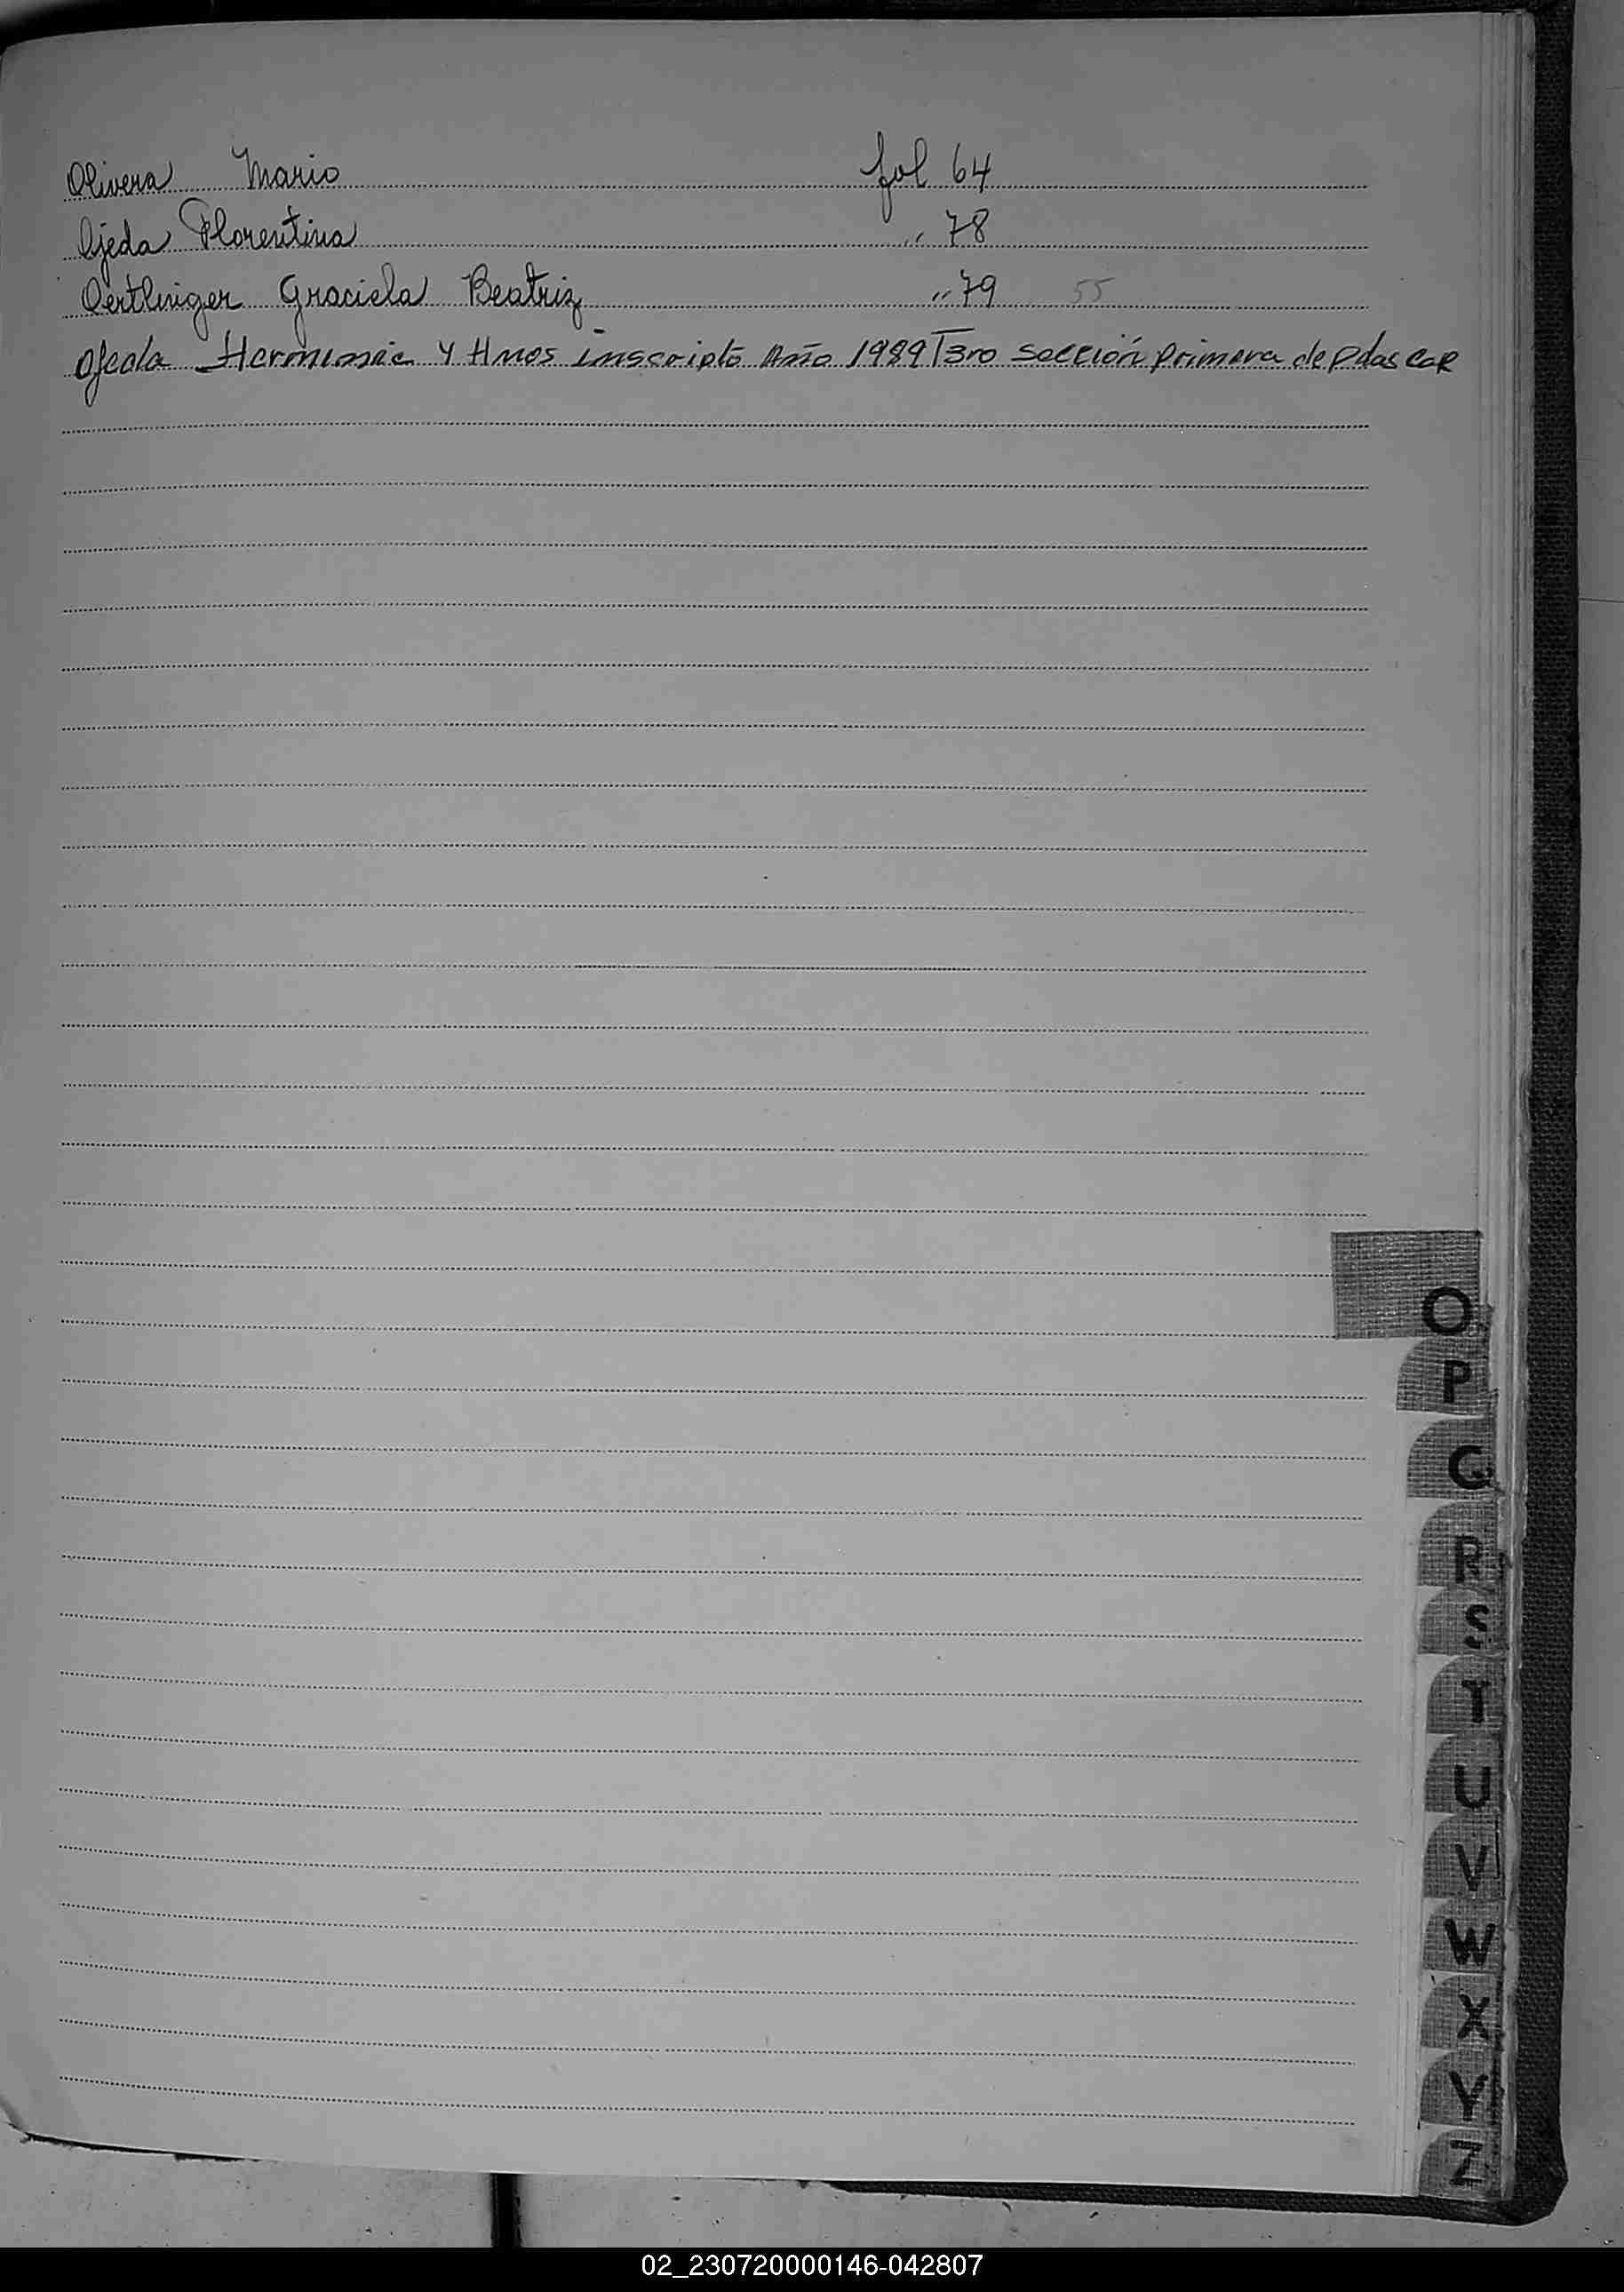 Olivera Mario fol 64
Ojeda Florentina " 78
Oertlinger Graciela Beatriz " 79 55
Ojeda Y Hnos inscripto Año 1989 T3ro sección primera de Pdas CAR
O
P
Q
R
S
T
U
V
W
X
Y
Z
02_230720000146-042807